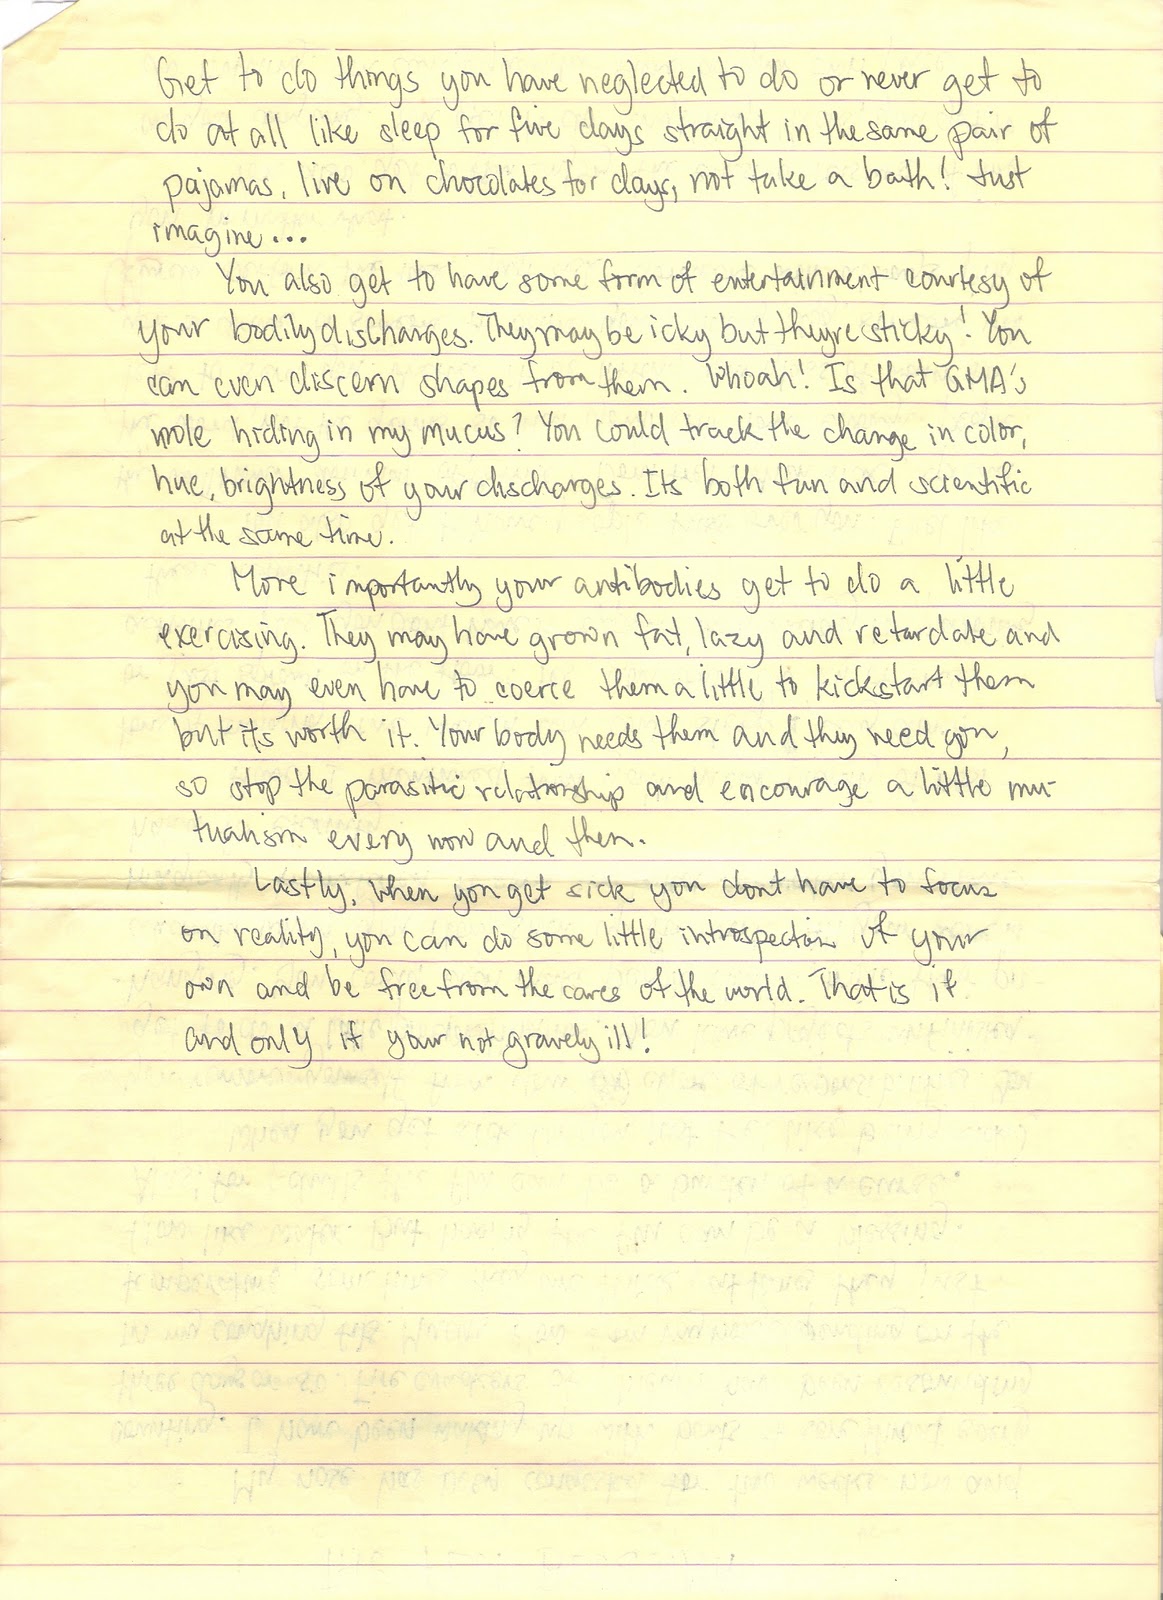 Get to do things you have neglected to do or never get to
do at all like sleep for five days straight in the same pair of
pajamas, live on chocolates for days, not take a bath! Just
imagine...
You also get to have some form of entertainment courtesy of
your bodily discharges. They may be icky but theyre sticky! You
can even discern shapes from them. Whoah! Is that GMA's
mole hiding in my mucus? You could track the change in color,
hue, brightness of your discharges. Its both fun and scientific
at the same time.
More importantly your antibodies get to do a little
exercising. They may have grown fat, lazy and retardate and
you may even have to coerce them a little to kickstart them
but it's worth it. Your body needs them and they need you,
so stop the parasitic relationship and encourage a little mu-
tualism every now and then.
Lastly, when you get sick you dont have to focus
on reality, you can do some little introspection of your
own and be free from the cares of the world. That is if
and only if your not gravely ill!